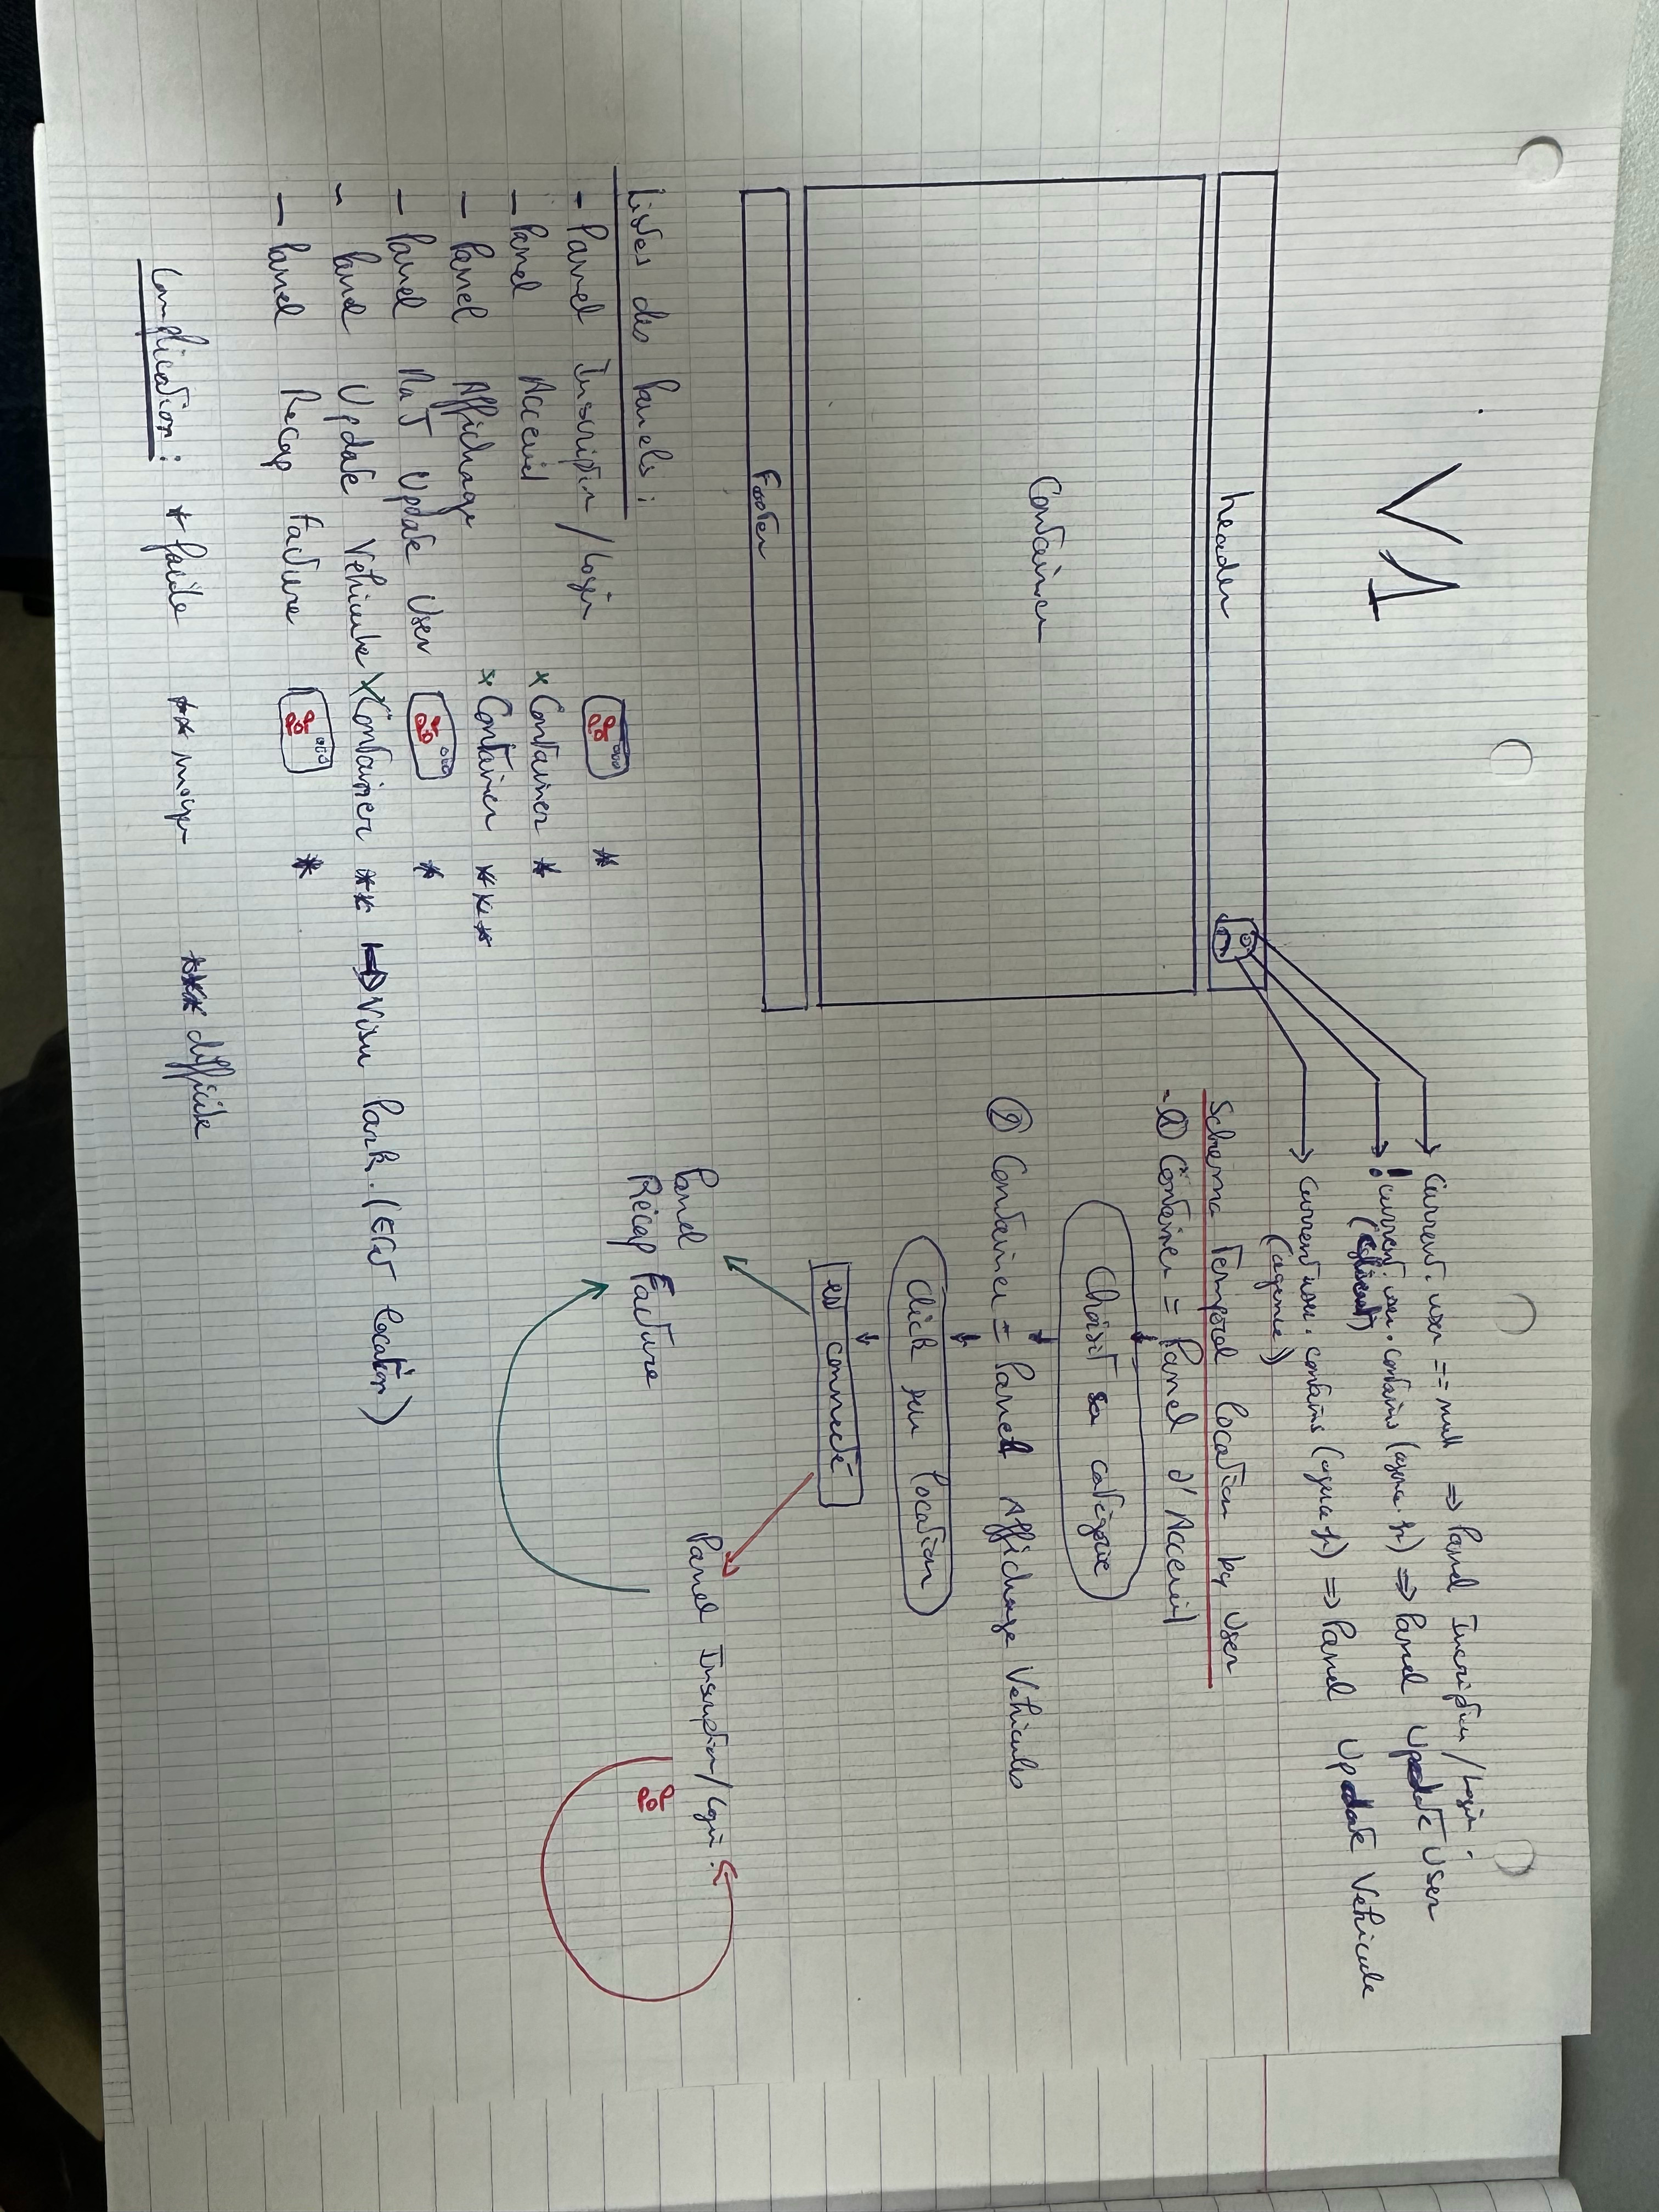 V1
header
Container
Footer
current.user == null => Panel Inscription / Login.
! current.user.contains (agence fr) => Panel Update User
(client)
current user.contains (agence fr) => Panel Update Vehicule
(agence)
Schema Temporel location by User
- ① Container = Panel d'Acceuil
Choisit sa catégorie
② Container = Panel Affichage Vehicules
Click sur location
est connecté
Panel
Récap Facture
Panel Inscription/Login.
POP
Listes des Panels :
- Panel Inscription / Login POP *
- Panel Acceuil x Container *
- Panel Affichage x Container ***
- Panel MaJ Update User POP *
- Panel Update Vehicule x Container ** => Visu Park. (Etat location)
- Panel Recap Facture POP *
Complication : * facile ** moyen *** difficile